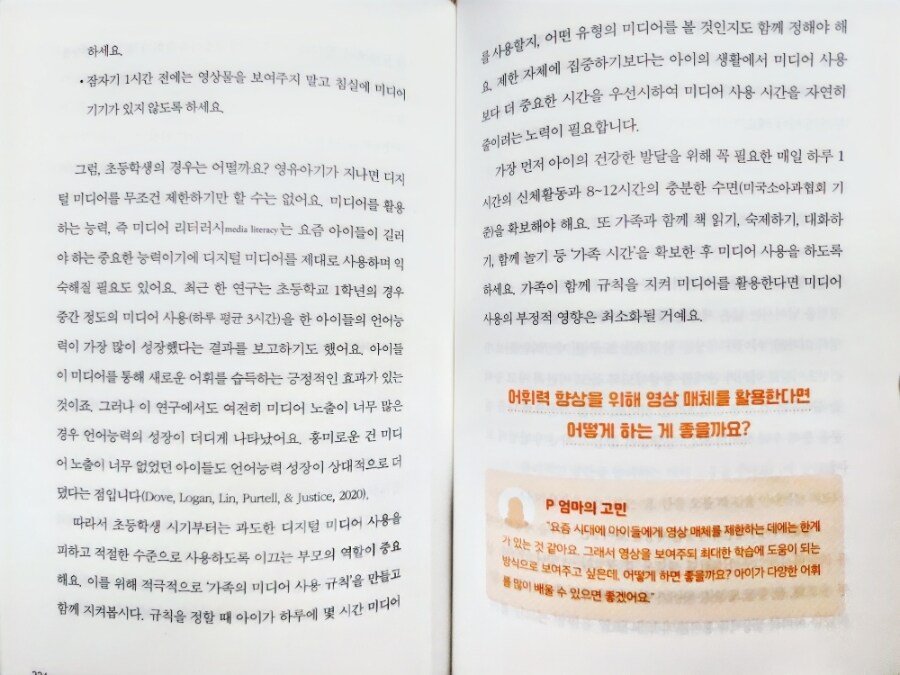 하세요.
• 잠자기 1시간 전에는 영상물을 보여주지 말고 침실에 미디어
기기가 있지 않도록 하세요.
그럼, 초등학생의 경우는 어떨까요? 영유아기가 지나면 디지
털 미디어를 무조건 제한하기만 할 수는 없어요. 미디어를 활용
하는 능력, 즉 미디어 리터러시media literacy는 요즘 아이들이 길러
야 하는 중요한 능력이기에 디지털 미디어를 제대로 사용하며 익
숙해질 필요도 있어요. 최근 한 연구는 초등학교 1학년의 경우
중간 정도의 미디어 사용(하루 평균 3시간)을 한 아이들의 언어능
력이 가장 많이 성장했다는 결과를 보고하기도 했어요. 아이들
이 미디어를 통해 새로운 어휘를 습득하는 긍정적인 효과가 있는
것이죠. 그러나 이 연구에서도 여전히 미디어 노출이 너무 많은
경우 언어능력의 성장이 더디게 나타났어요. 흥미로운 건 미디
어 노출이 너무 없었던 아이들도 언어능력 성장이 상대적으로 더
뎠다는 점입니다(Dove, Logan, Lin, Purtell, & Justice, 2020).
따라서 초등학생 시기부터는 과도한 디지털 미디어 사용을
피하고 적절한 수준으로 사용하도록 이끄는 부모의 역할이 중요
해요. 이를 위해 적극적으로 '가족의 미디어 사용 규칙'을 만들고
함께 지켜봅시다. 규칙을 정할 때 아이가 하루에 몇 시간 미디어
를 사용할지, 어떤 유형의 미디어를 볼 것인지도 함께 정해야 해
요. 제한 자체에 집중하기보다는 아이의 생활에서 미디어 사용
보다 더 중요한 시간을 우선시하여 미디어 사용 시간을 자연히
줄이려는 노력이 필요합니다.
가장 먼저 아이의 건강한 발달을 위해 꼭 필요한 매일 하루 1
시간의 신체활동과 8~12시간의 충분한 수면(미국소아과협회 기
준)을 확보해야 해요. 또 가족과 함께 책 읽기, 숙제하기, 대화하
기, 함께 놀기 등 '가족 시간'을 확보한 후 미디어 사용을 하도록
하세요. 가족이 함께 규칙을 지켜 미디어를 활용한다면 미디어
사용의 부정적 영향은 최소화될 거예요.
어휘력 향상을 위해 영상 매체를 활용한다면
어떻게 하는 게 좋을까요?
P 엄마의 고민
"요즘 시대에 아이들에게 영상 매체를 제한하는 데에는 한계
가 있는 것 같아요. 그래서 영상을 보여주되 최대한 학습에 도움이 되는
방식으로 보여주고 싶은데, 어떻게 하면 좋을까요? 아이가 다양한 어휘
를 많이 배울 수 있으면 좋겠어요."